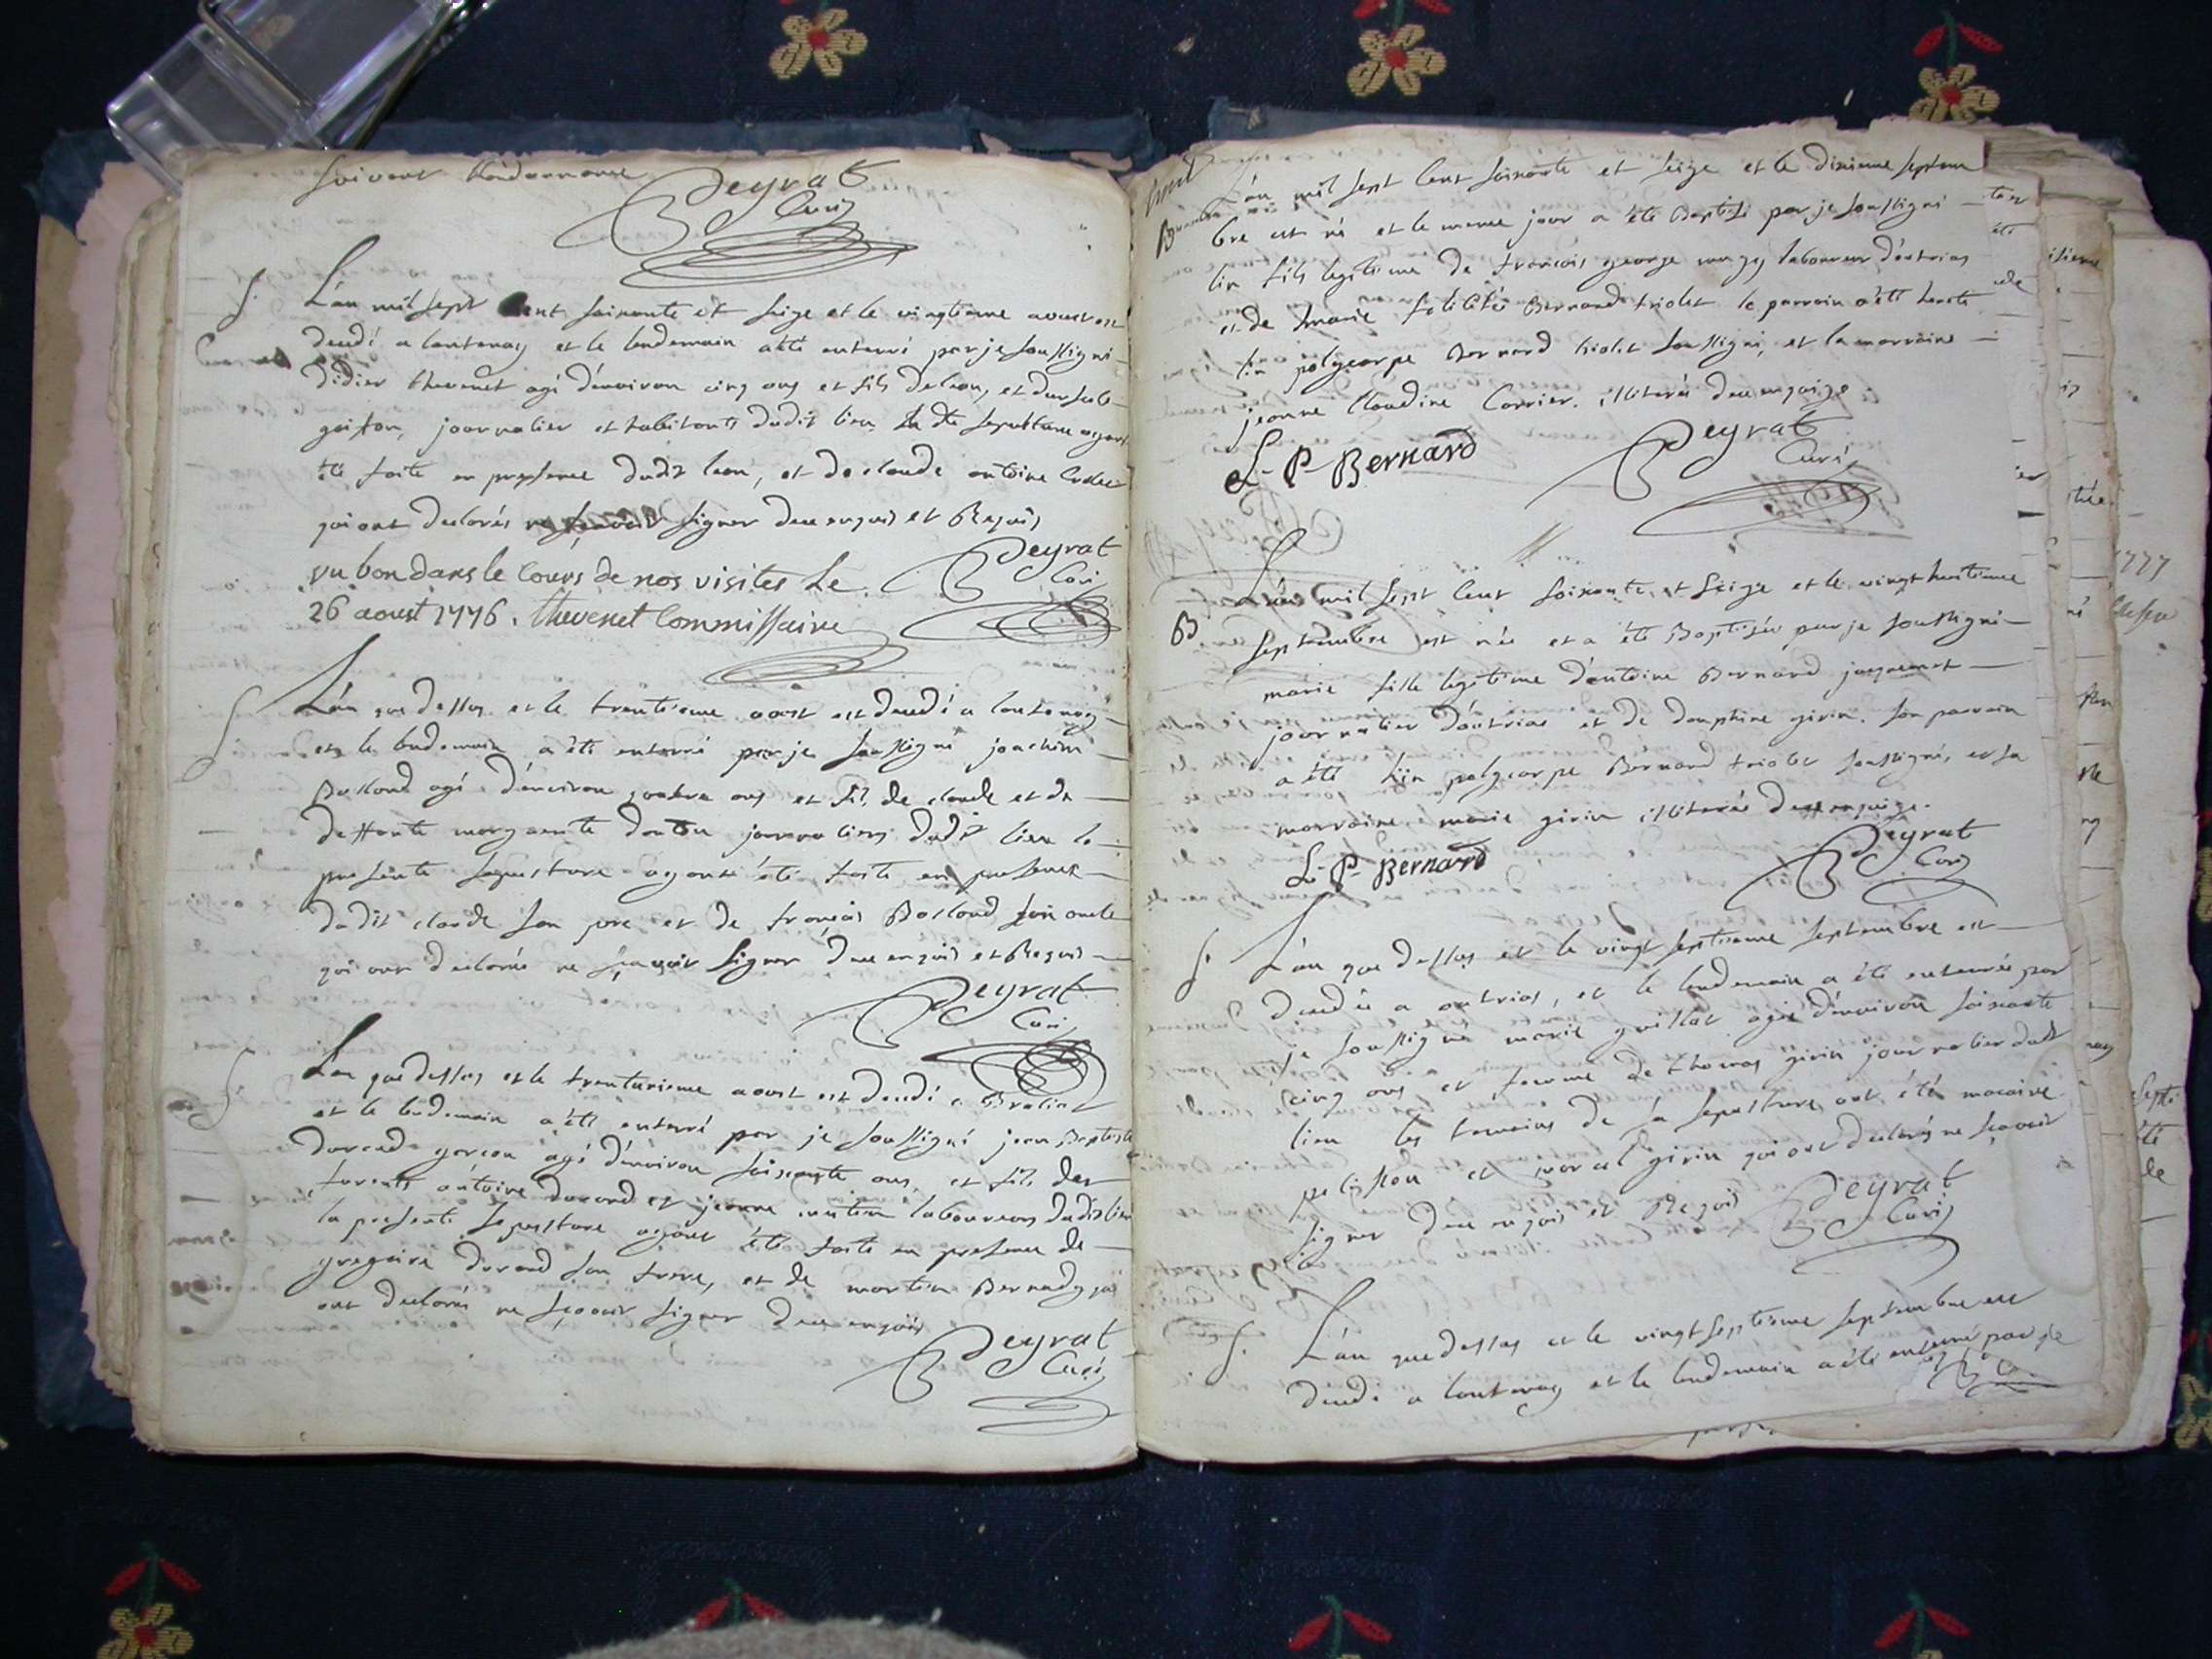 suivant l'ordonnance
Peyrat
Curé
S.
L'an mil sept cent soixante et seize et le vingtieme aoust est
decedé a lantenay et le lendemain a été enterré par je soussigné
didier thevenet agé d'environ cinq ans et fils de leon, et
journalier et habitants dudit lieu la dte sepulture ayant
été faite en presence dudit leon, et de claude antoine
qui ont declarés ne sçavoir signer de ce enquis et Requis
Peyrat
Curé
vu bon dans le Cours de nos visites Le
26 aoust 1776. thevenet Commissaire
S
L'an que dessus et le trentieme aoust est decedé a lantenay
et le lendemain a été enterré par je soussigné joachim
Balland agé d'environ quatre ans et fils de claude et de
deffunte margueritte journaliers dudit lieu la
presente sepulture ayant été faite en presence
dudit claude son pere et de françois Balland son oncle
qui ont declarés ne sçavoir signer de ce enquis et Requis
Peyrat
Curé
S.
L'an que dessus et le trentunieme aoust est decedé a
et le lendemain a été enterré par je soussigné jean Baptiste
durand garcon agé d'environ soixante ans, et fils des
furents antoine durand et jeanne laboureurs dudit lieu
la presente sepulture ayant été faite en presence de
gregoire durand son frere, et de martin Bernard qui
ont declarés ne sçavoir signer de ce enquis
Peyrat
Curé
L'an mil sept cent soixante et seize et le dixieme septem
B
bre est né et le meme jour a été Baptisé par je soussigné
lin fils legitime de francois george laboureur d'outriaz
et de marie felicité Bernard triolet le parrain a été
lin polycarpe Bernard triolet soussigné, et la marraine
jeanne Claudine Carrier. illiterée de ce enquise
L. P. Bernard
Peyrat
Curé
L'an mil sept cent soixante et seize et le vingt huitieme
B
septembre est née et a été Baptisée par je soussigné
marie fille legitime d'antoine Bernard jacquemet
journalier d'outriaz et de dauphine girin. son parrain
a été lin polycarpe Bernard triolet soussigné, et sa
marraine marie girin illiterée de ce enquise.
L. P. Bernard
Peyrat
Curé
S.
L'an que dessus et le vingt septieme septembre est
decedée a outriaz, et le lendemain a été enterrée par
je soussigné marie guillat agée d'environ soixante
cinq ans et femme de thomas girin journalier dudt
lieu les temoins de sa sepulture ont été macaire
pelisson et marcel girin qui ont declarés ne sçavoir
signer de ce enquis et Requis
Peyrat
Curé
S.
L'an que dessus et le vingt septieme septembre est
decedé a lantenay et le lendemain a été enterré par je